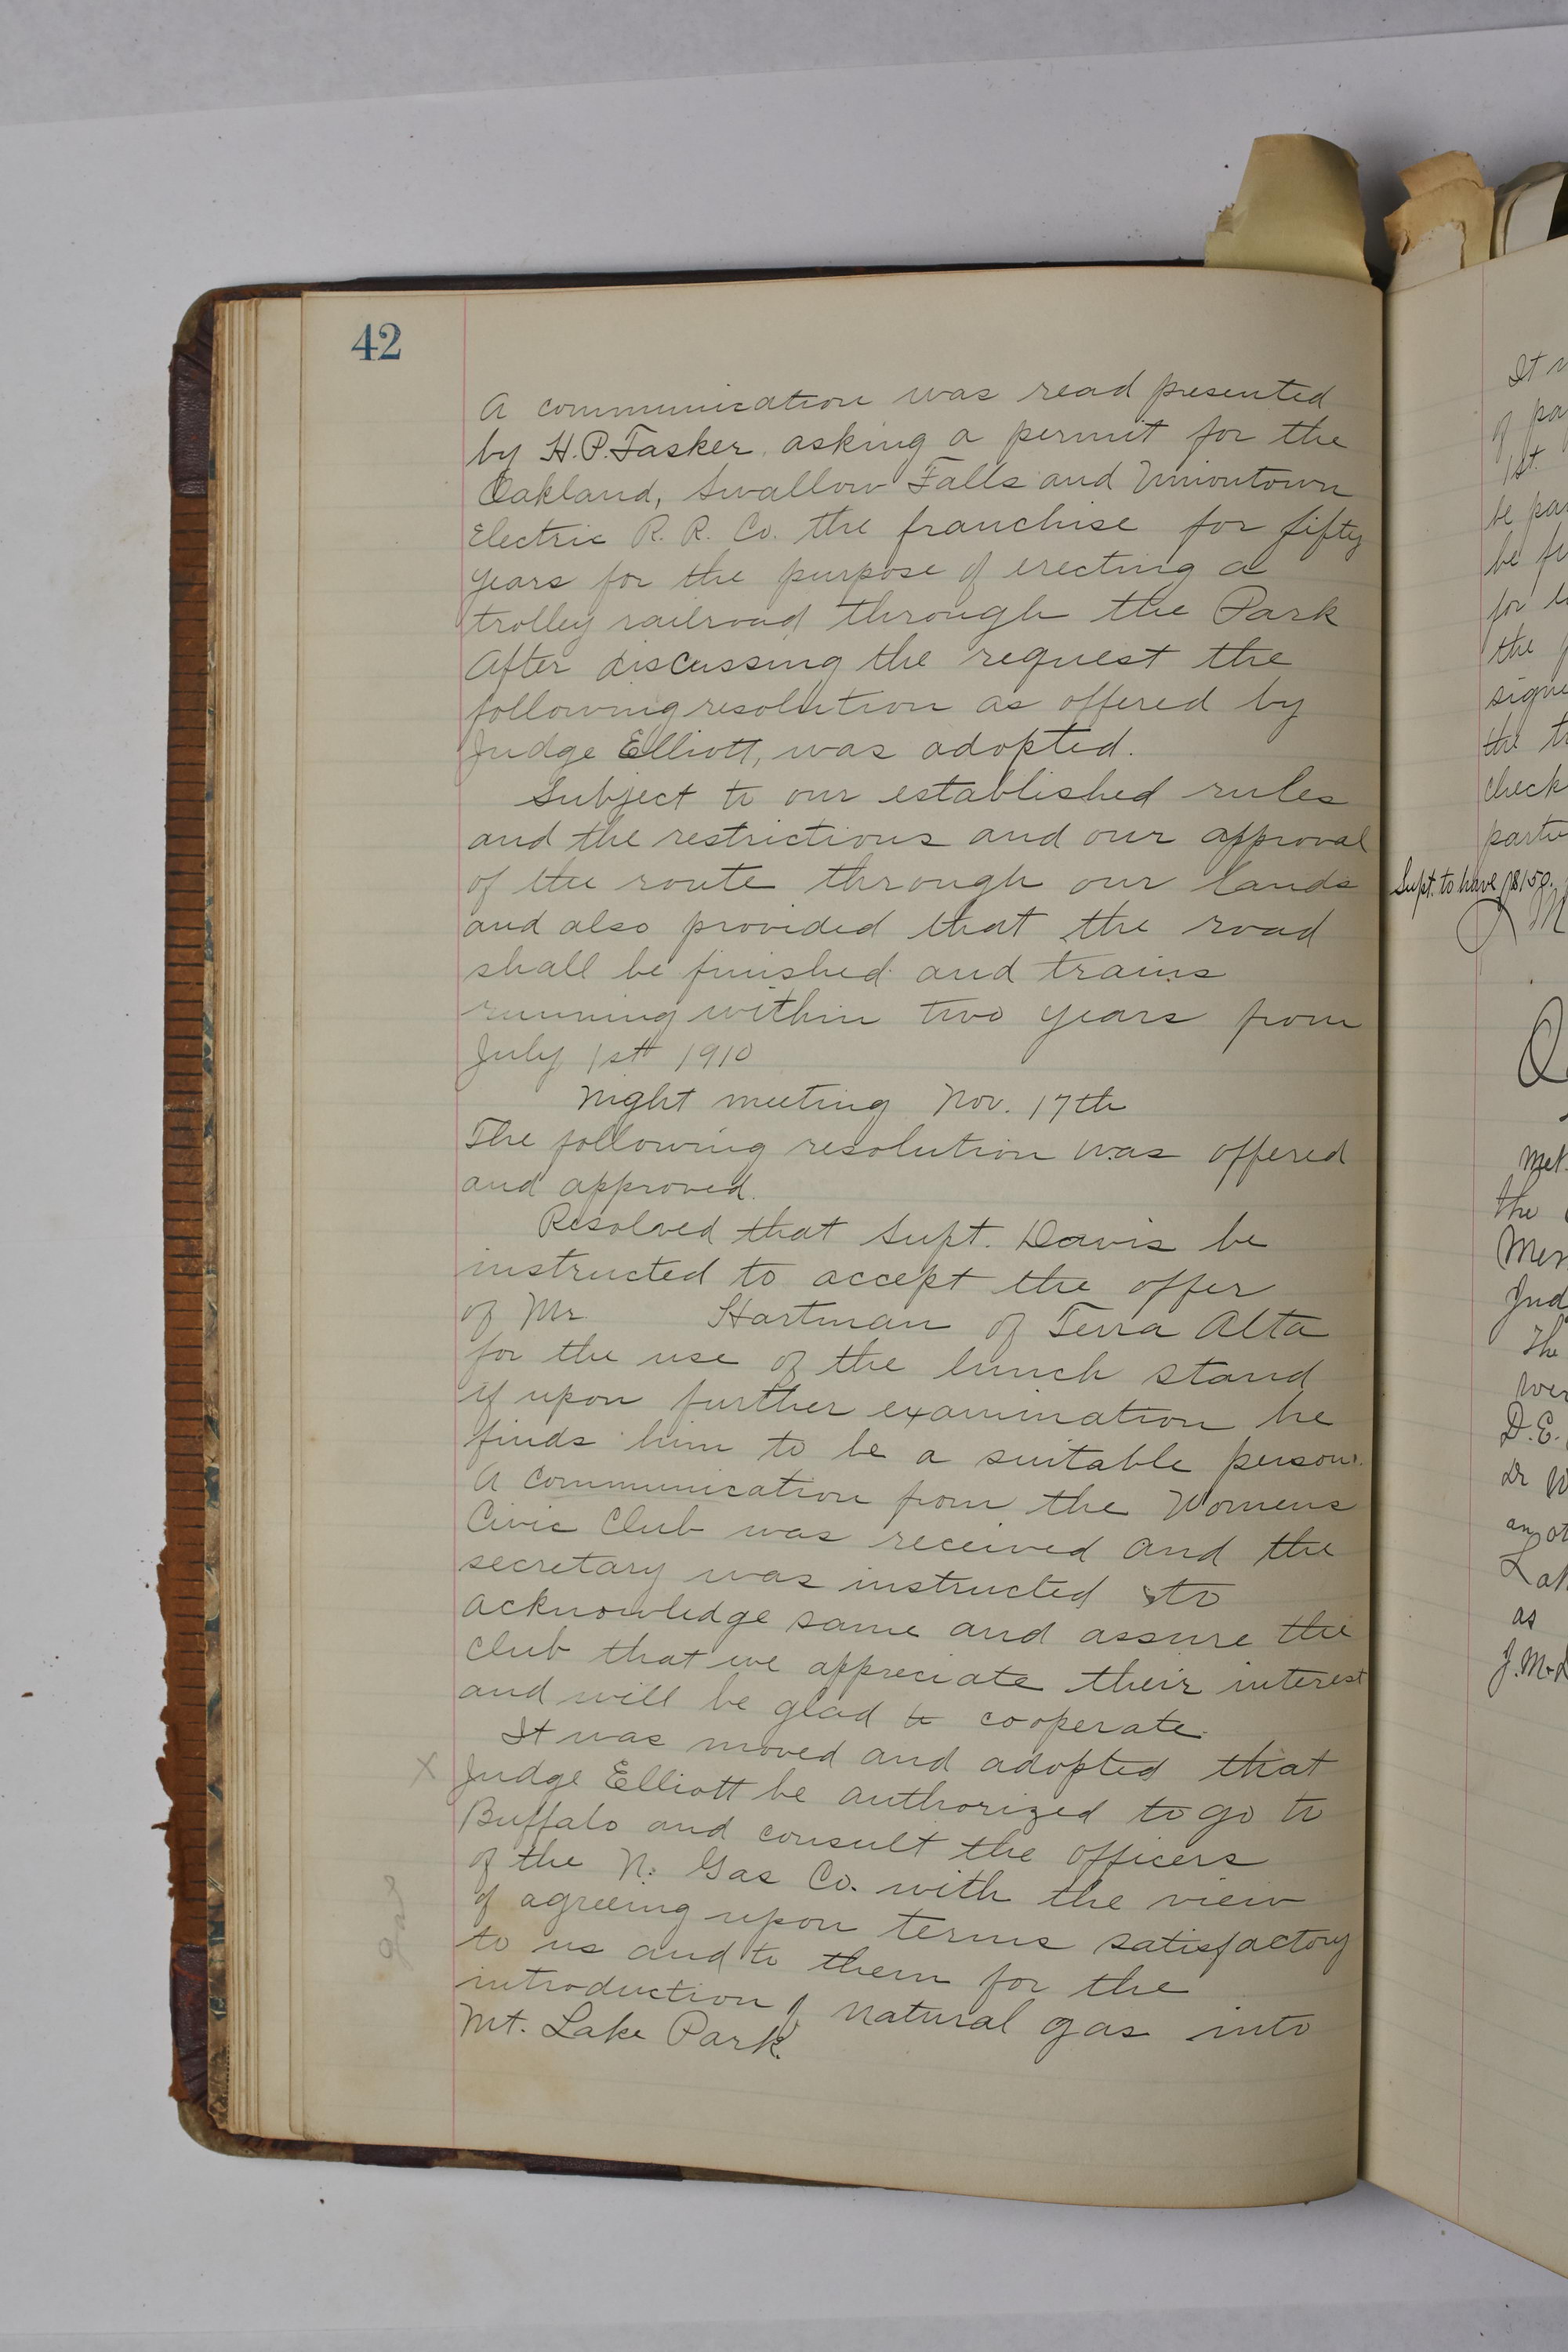 42
A communication was read presented
by H.P. Tasker, asking a permit for the
Oakland, Swallow Falls and Uniontown
Electric R. R. Co. the franchise for fifty
years for the purpose of erecting a
trolley railroad through the Park
After discussing the request the
following resolution as offered by
Judge Elliott, was adopted.
Subject to our established rules
and the restrictions and our approval
of the route through our lands
and also provided that the road
shall be finished and trains
running within two years from
July 1st 1910
Night meeting Nov. 17th
The following resolution was offered
and approved.
Resolved that Supt. Davis be
instructed to accept the offer
of Mr. Hartman of Terra Alta
for the use of the lunch stand
if upon further examination he
finds him to be a suitable person.
A communication from the Womens
Civic Club was received and the
secretary was instructed to
acknowledge same and assure the
club that we appreciate their interest
and will be glad to cooperate.
It was moved and adopted that
x Judge Elliott be authorized to go to
Buffalo and consult the officers
of the N. Gas Co. with the view
of agreeing upon terms satisfactory
to us and to them for the
introduction of natural gas into
Mt. Lake Park.
gas
It
of
1st
be
be
for
the
signe
the
check
Supt. to have $150.
Q
Met.
the
Mem
Jud
The
wer
D.E.
Dr W
an
Lak
as
J.M.